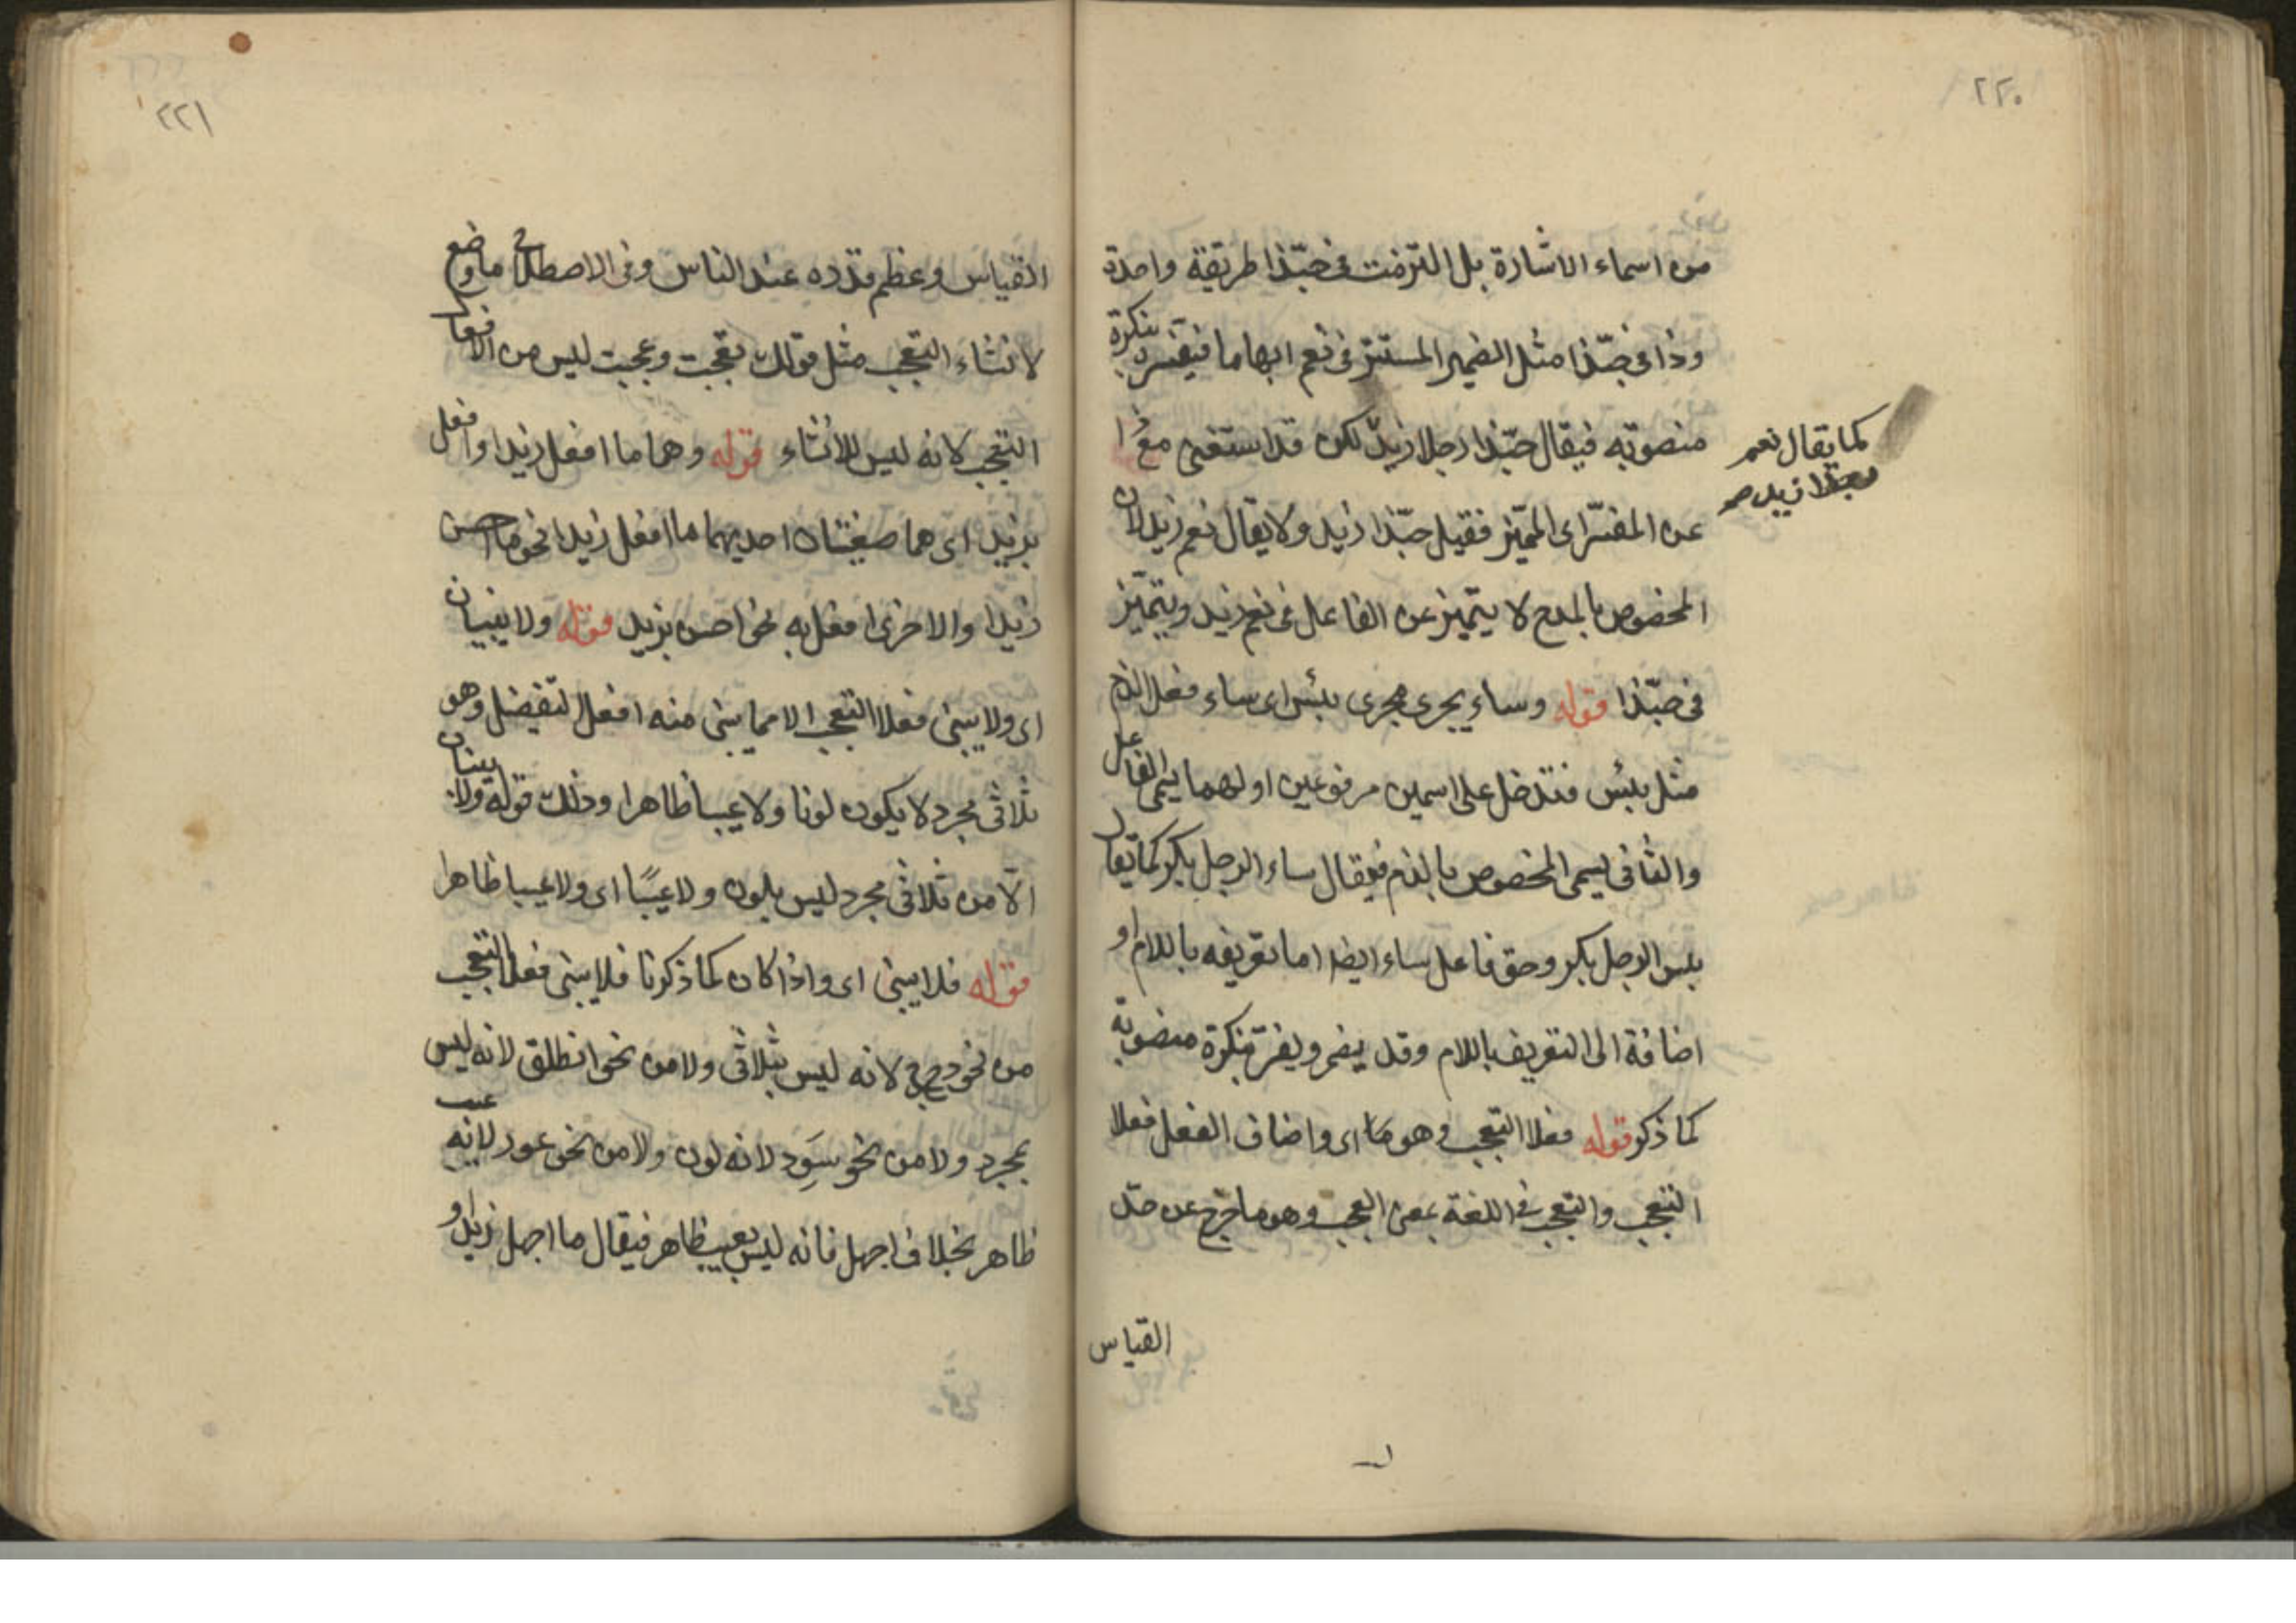 ٢٢٠
من اسماء الاشارة بل التزمت فى حبّذا طريقة واحدة
وذا فى حبّذا مثل الضمير المستتر فى نعم ابهاما فيفسر بنكرة
منصوبة فيقال حبّذا رجلا زيد لكن قد استغنى
كما يقال نعم
رجلا زيد صح
عن المفسّر اى المميّز فقيل حبّذا زيد ولا يقال نعم زيد لان
المخصوص بالمدح لا يتميز عن الفاعل فى نعم زيد ويتميّز
فى حبّذا قوله وساء يجرى مجرى بئس اى ساء فعل الذم
مثل بئس فتدخل على اسمين مرفوعين اولهما يسمى الفاعل
والثانى يسمى المخصوص بالذم فيقال ساء الرجل بكر كما يقال
بئس الرجل بكر وحق فاعل ساء ايضا اما تعريفه باللام او
اضافة الى التعريف باللام وقد يضمر ويفسّر بنكرة منصوبة
كما ذكر قوله فعلا التعجب وهو ما اى واضاف الفعل فعلا
التعجب والتعجب فى اللغة بمعنى العجب وهو ما خرج عن حدّ
القياس
٢٢١
القياس وعظم قدره عند الناس وفى الاصطلاح ما وضع
لانشاء التعجب مثل قولك تعجبت وعجبت ليس من الافعال
التعجب لانه ليس للانشاء قوله وهما ما افعل زيدا وافعل
بزيد اى هما صيغتان احديهما ما افعل زيدا نحو ما احسن
زيدا والاخرى افعل به نحو احسن بزيد قوله ولا يبنيان
اى ولا يبنى فعلا التعجب الا مما يبنى منه افعل التفضيل وهو
ثلاثى مجرد لا يكون لونا ولا عيبا ظاهرا وذلك قوله ولا يبنيان
الّا من ثلاثى مجرد ليس بلون ولا عيبًا اى ولا عيبا ظاهرا
قوله فلا يبنى اى واذا كان كما ذكرنا فلا يبنى فعلا التعجب
من نحو دحرج لانه ليس بثلاثى ولا من نحو انطلق لانه ليس
بمجرد ولا من نحو سَوِد لانه لون ولا من نحو عور لانه عيب
ظاهر بخلاف اجهل فانه ليس بعيب ظاهر فيقال ما اجهل زيدا و